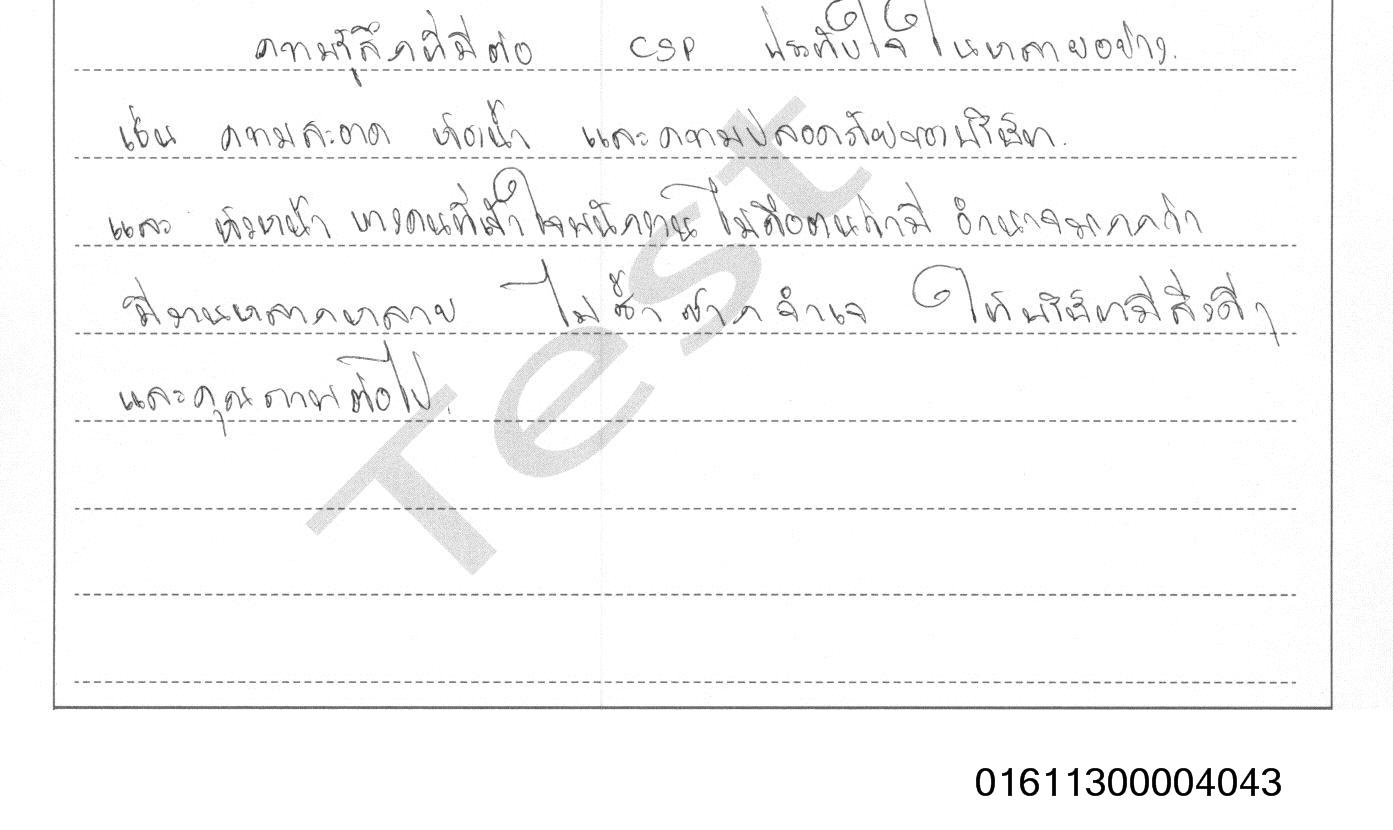 ความรู้สึกที่มีต่อ CSP ประทับใจในหลายอย่าง.
เช่น ความสะอาด ห้องน้ำ และความปลอดภัยของบริษัท.
และ หัวหน้า บางคนที่เข้าใจพนักงาน ไม่ถือตนว่ามี อำนาจมากกว่า
มีงานหลากหลาย ไม่ซ้ำซากจำเจ ให้บริษัทมีสิ่งดีๆ
และคุณภาพต่อไป.
Test
01611300004043